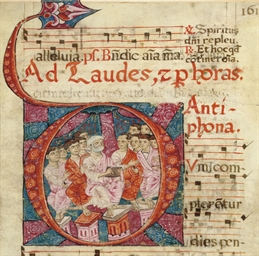 161
℣. Spiritus
dñi repleu.
℟. Et hoc qd
cõtinet oĩa.
alleluia. ps. Bñdic aĩa mea.
Ad Laudes, z p horas.
Anti-
phona.
Dum com-
plerẽtur
dies pen-